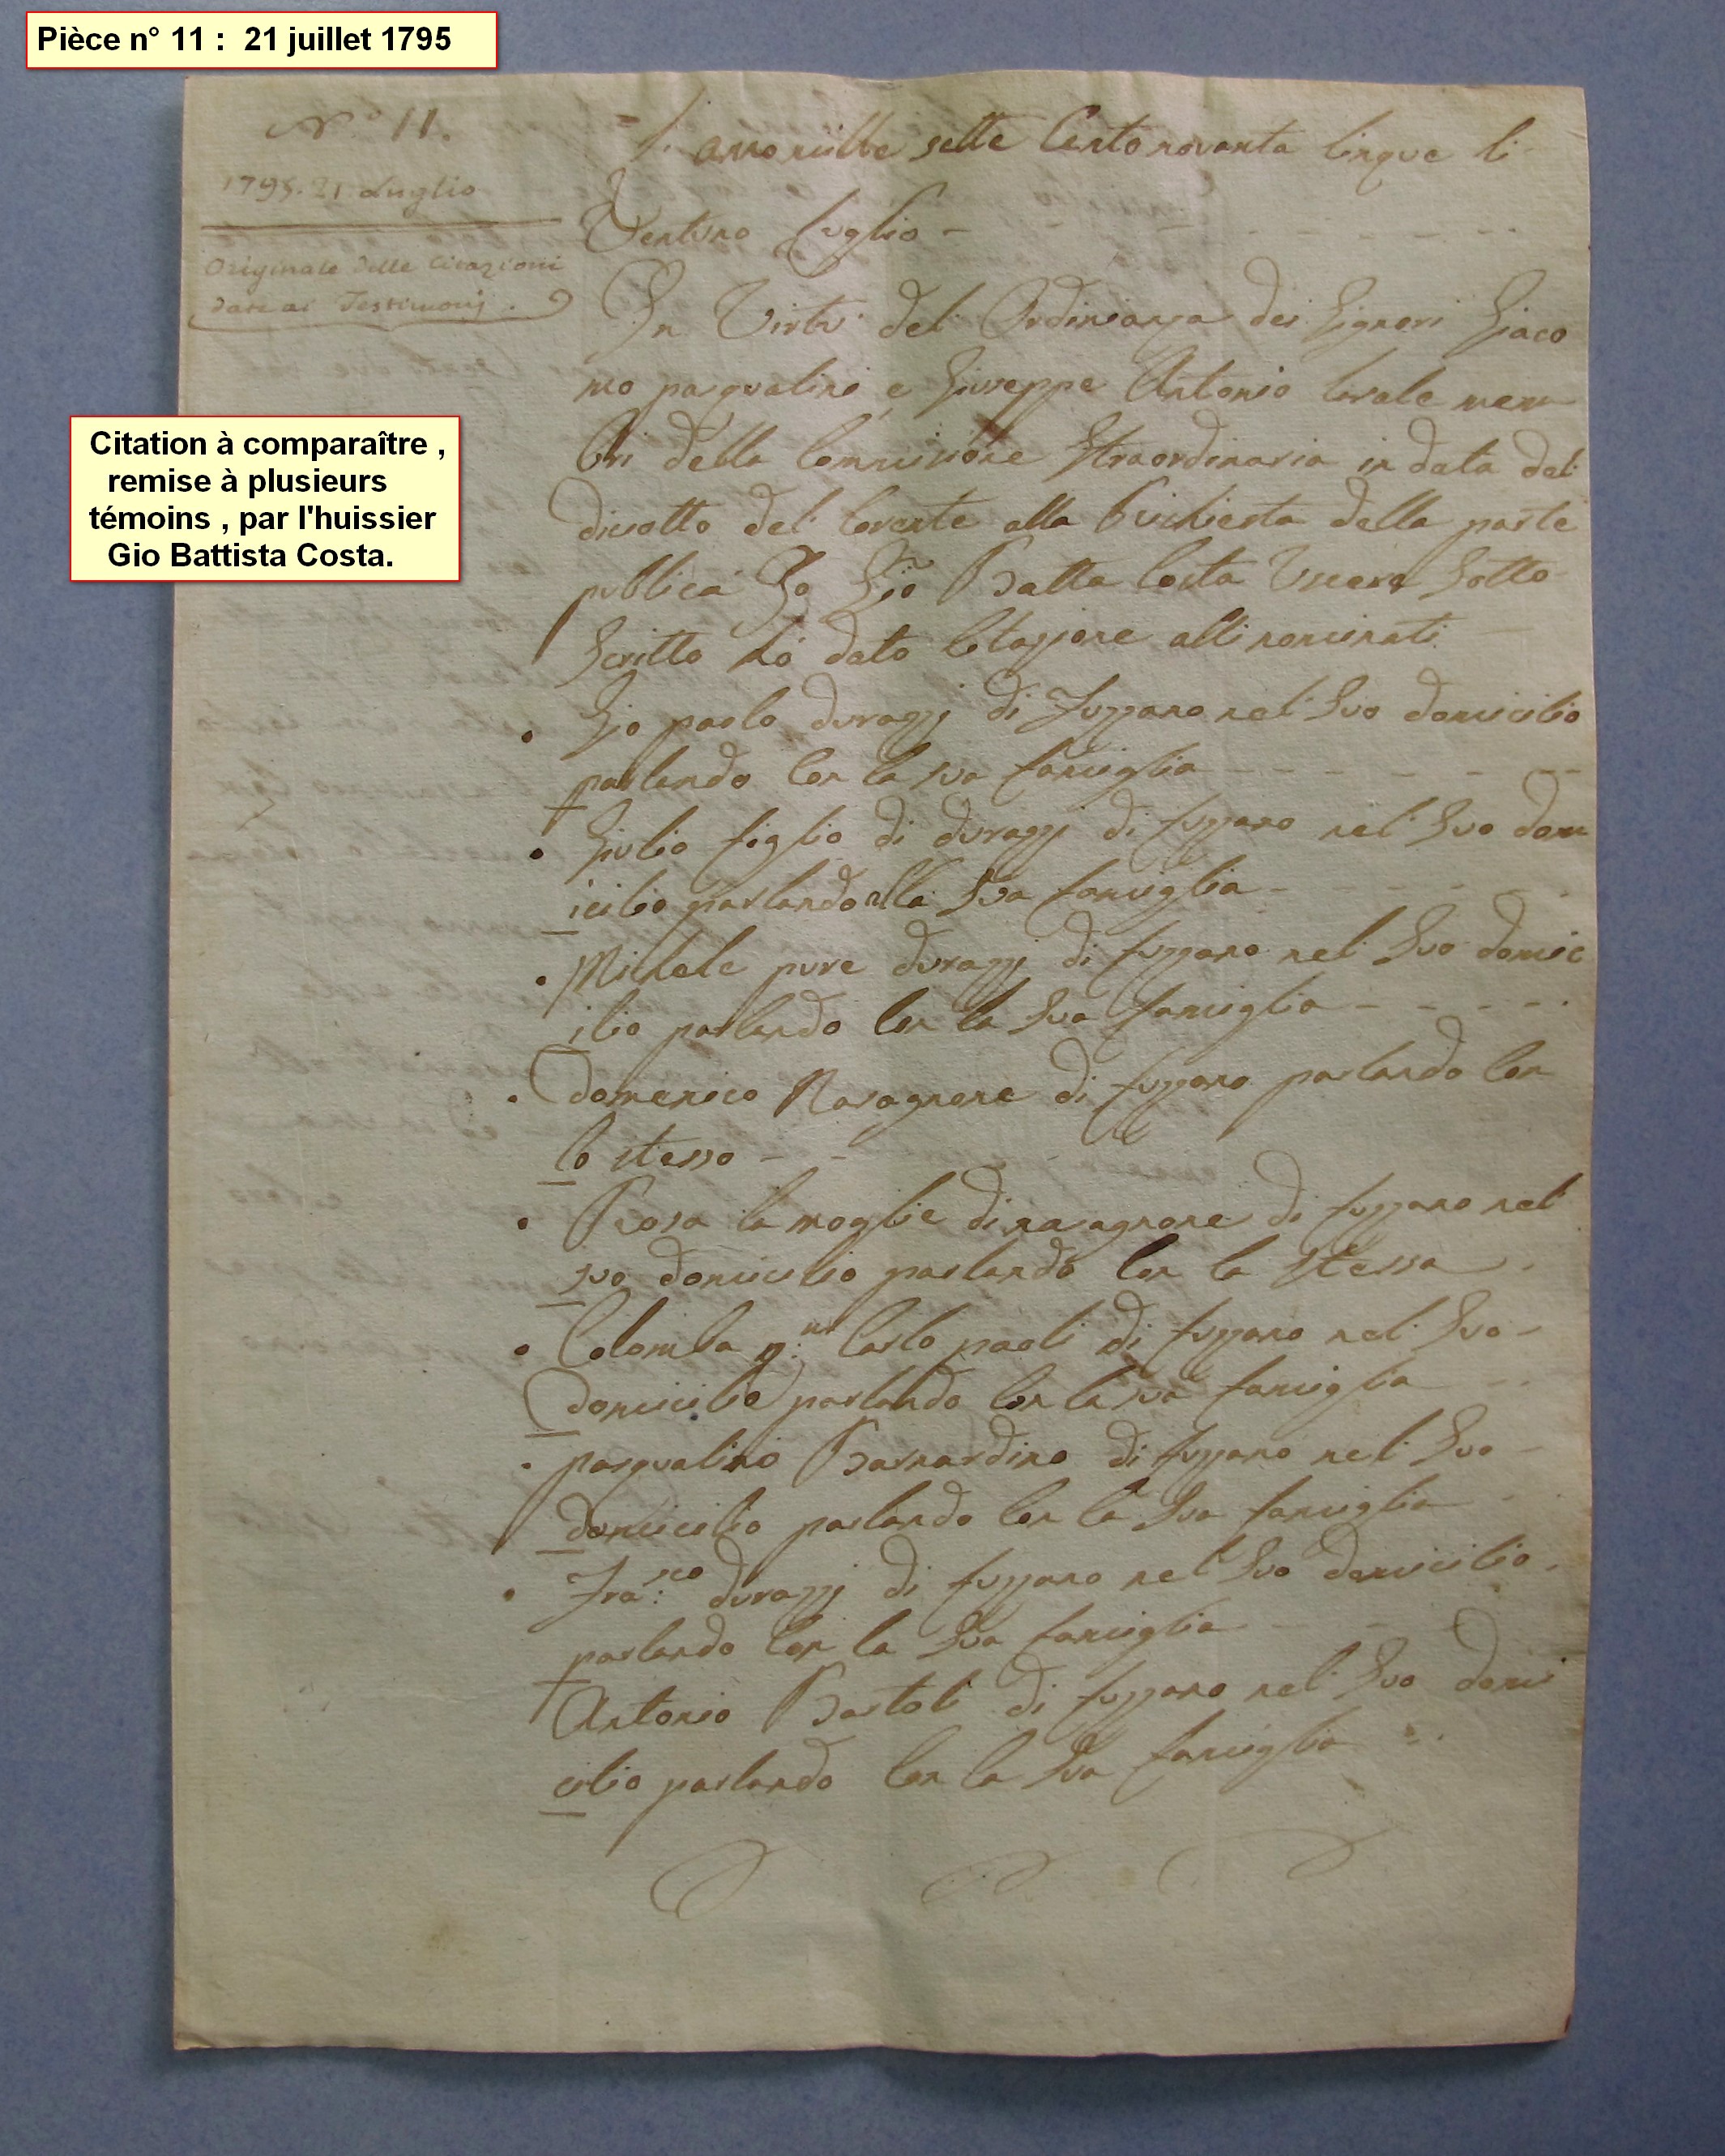 Pièce n° 11 : 21 juillet 1795
N.° 11.
1795. 21. Luglio
Originale delle Citazioni
date ai Testimonj.
Citation à comparaître ,
remise à plusieurs
témoins , par l'huissier
Gio Battista Costa.
L'anno mille sette Cento novanta Cinque li
Ventuno Luglio
In Virtù del Ordinanza dei Signori Giaco
mo pasqualini e Giuseppe Antonio Casale mem
bri della Commissione Straordinaria in data del
diciotto del Corente alla Richiesta della parte
publica Io Gio Batta Costa Usciere Sotto
Scritto hò dato Citazione alli nominati
Gio paolo durazzj di fuzzano nel Suo domicilio
parlando Con la sua famiglia
Giulio figlio di durazzj di fuzzano nel Suo dom
icilio parlando alla Sua famiglia
Michele pure durazzj di fuzzano nel Suo domic
ilio parlando Con la Sua famiglia
Domenico di fuzzano parlando Con
lo stesso
Rosa la moglie di di fuzzano nel
suo domicilio parlando Con la Stessa
Colomba Carlo paoli di fuzzano nel Suo
Domicilio parlando Con la sua famiglia
pasqualino Barnardino di fuzzano nel Suo
domicilio parlando Con la Sua famiglia
Fra:sco durazzj di fuzzano nel Suo Domicilio
parlando Con la Sua famiglia
Antonio Bartoli di fuzzano nel Suo domi
cilio parlando Con la Sua famiglia